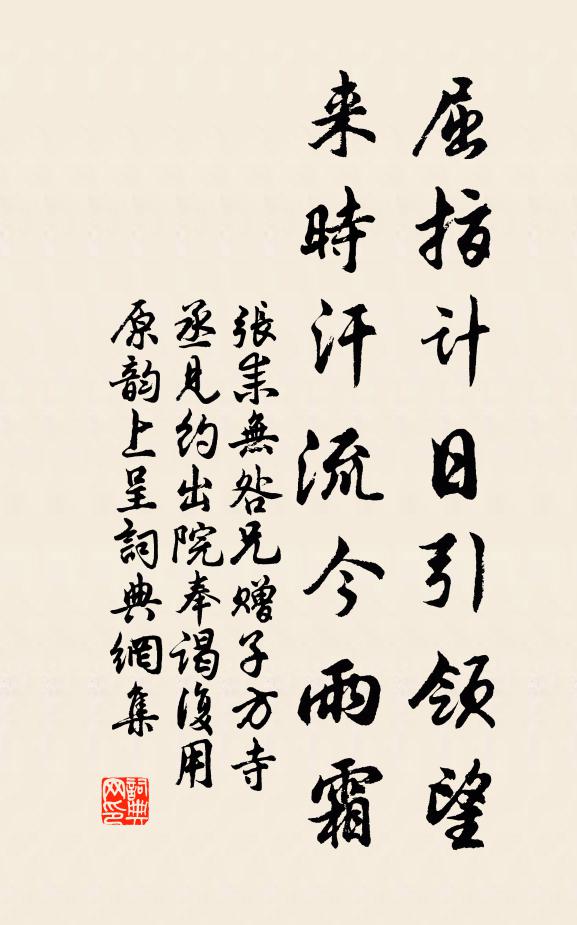 屈指计日引领望
来時汗流今雨霜
張耒無咎兄赠子方寺
丞見约出院奉谒復用
原韵上呈詞典網集
詞典网印